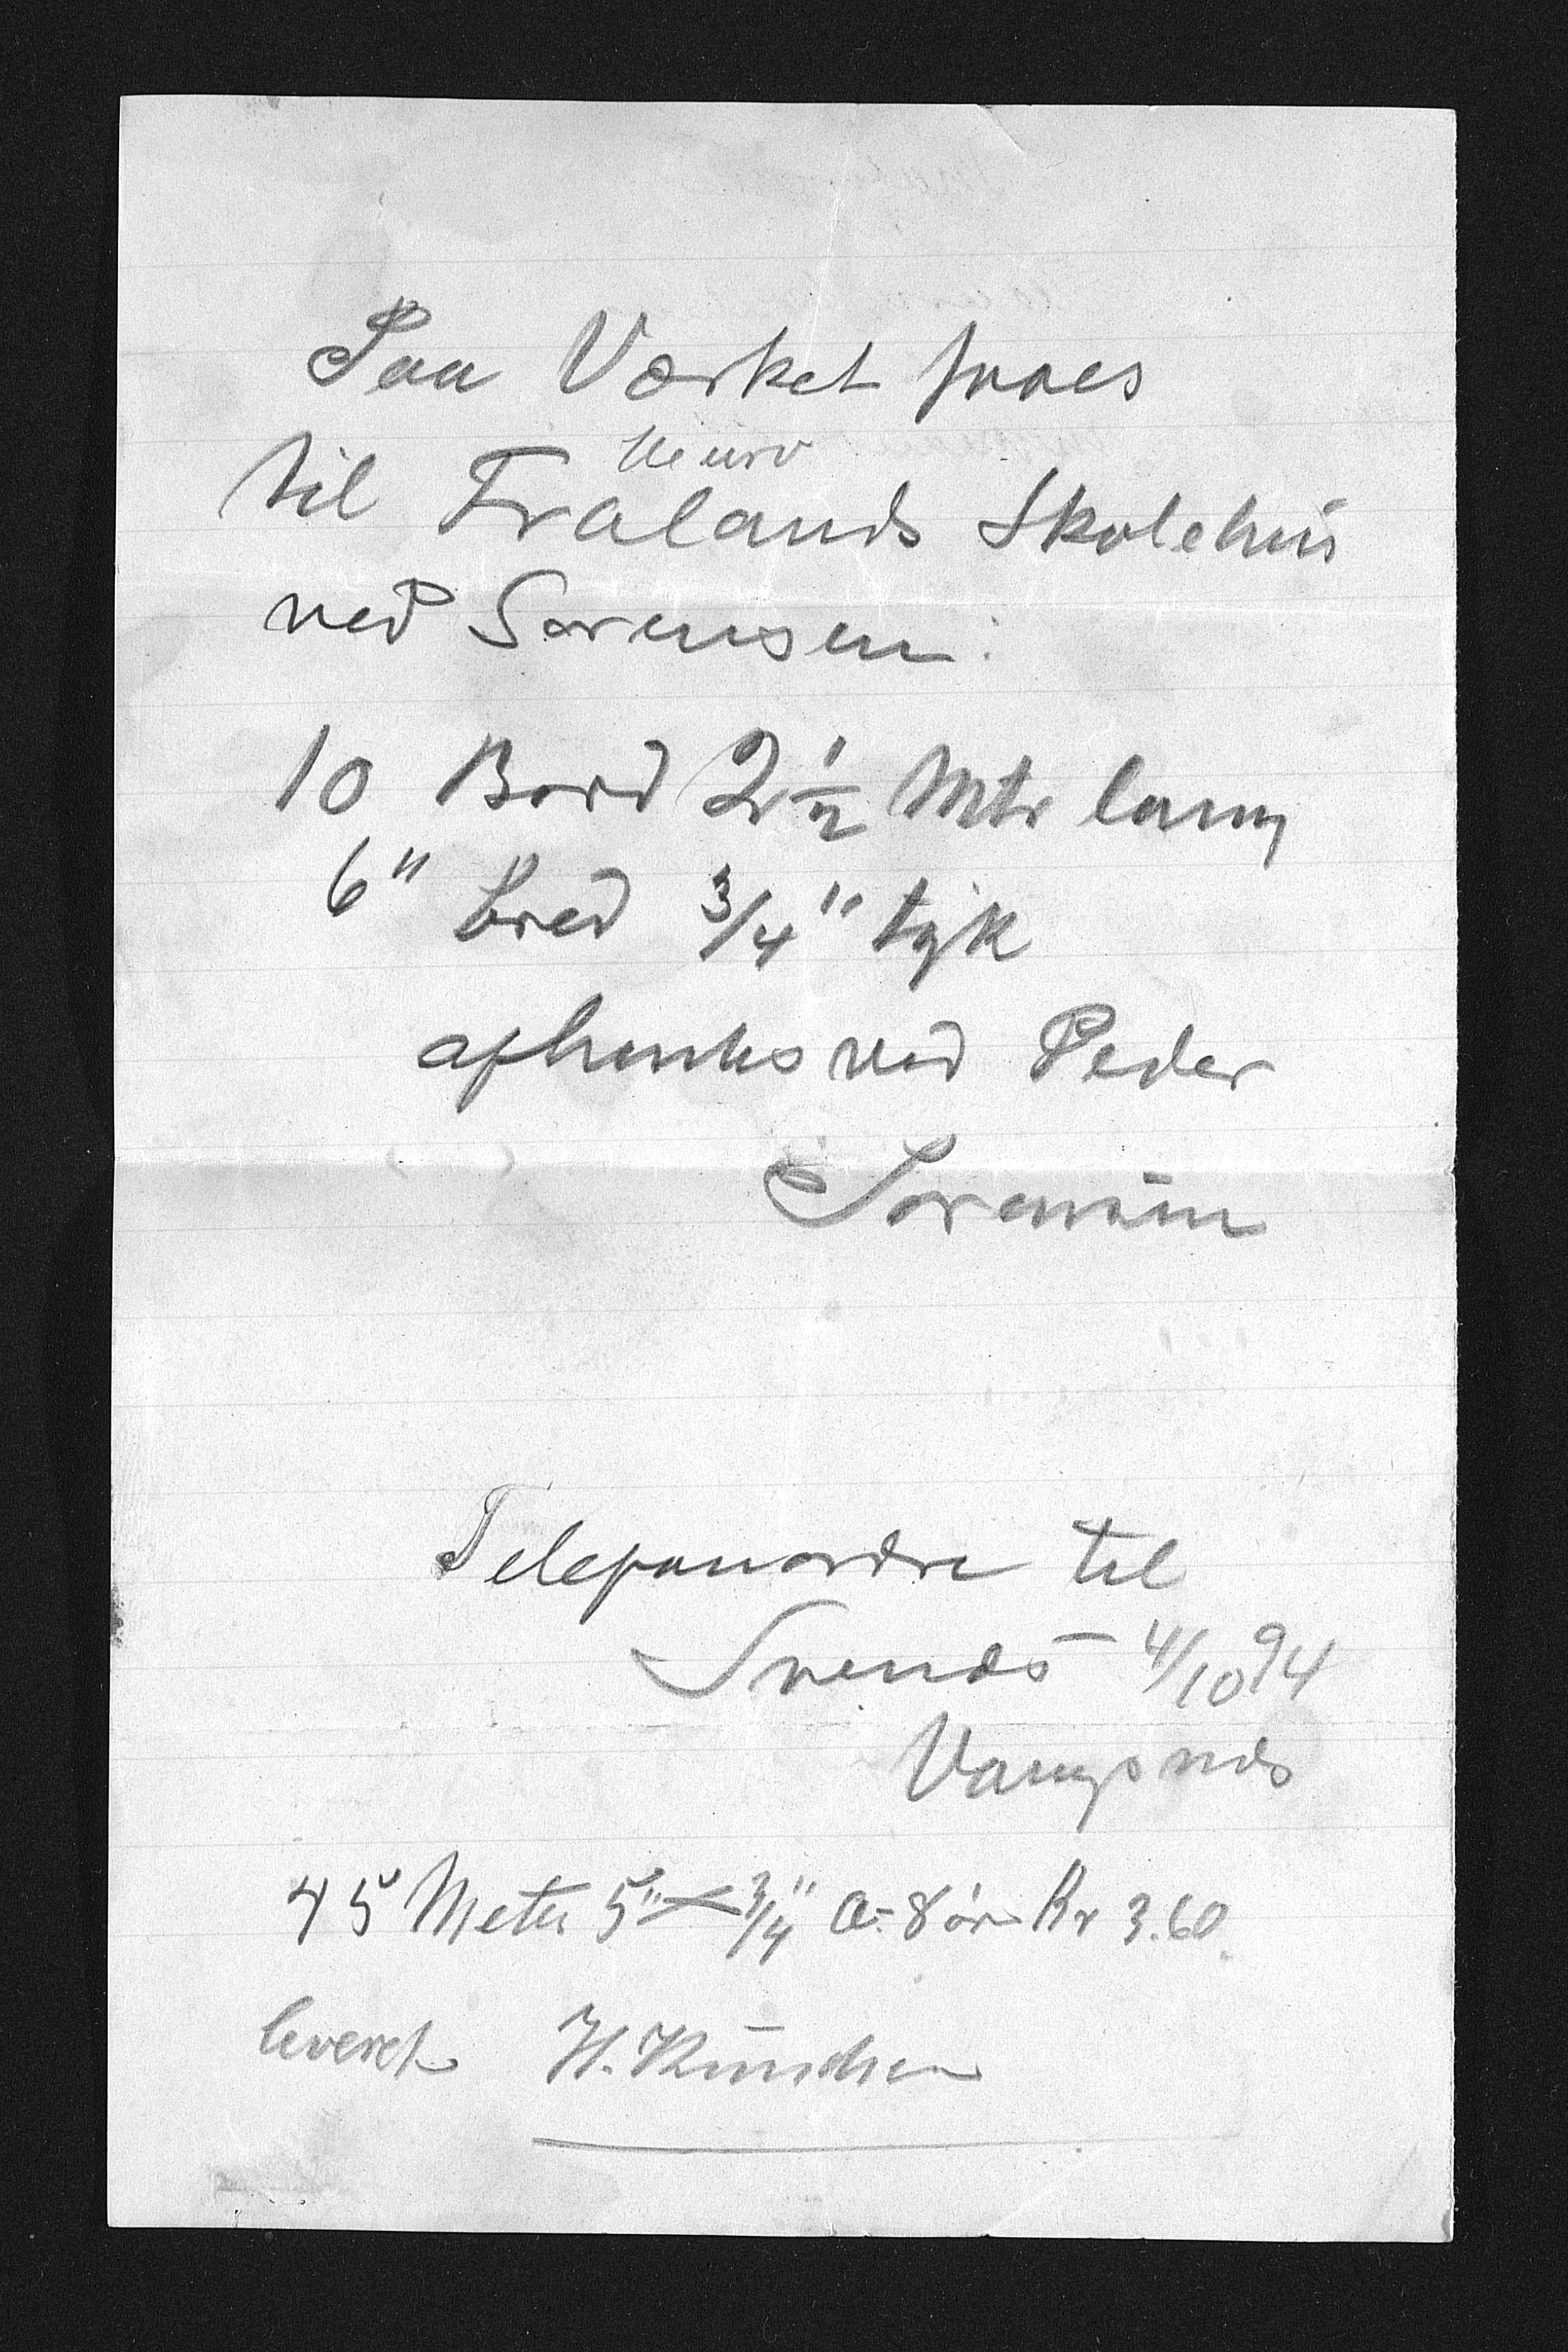 Paa Værket faaes
til Frølands Skolehus
ved Sørensen:
10 Bord 2 1/2 Mtr lang
6" bred 3/4" tyk
afhentes ved Peder
Sørensen
Telefonordre til
Svends 4/10 94
Vangsnes
45 Meter 5" x 3/4" a 8 ör Kr 3.60.
leveret H. Knudsen